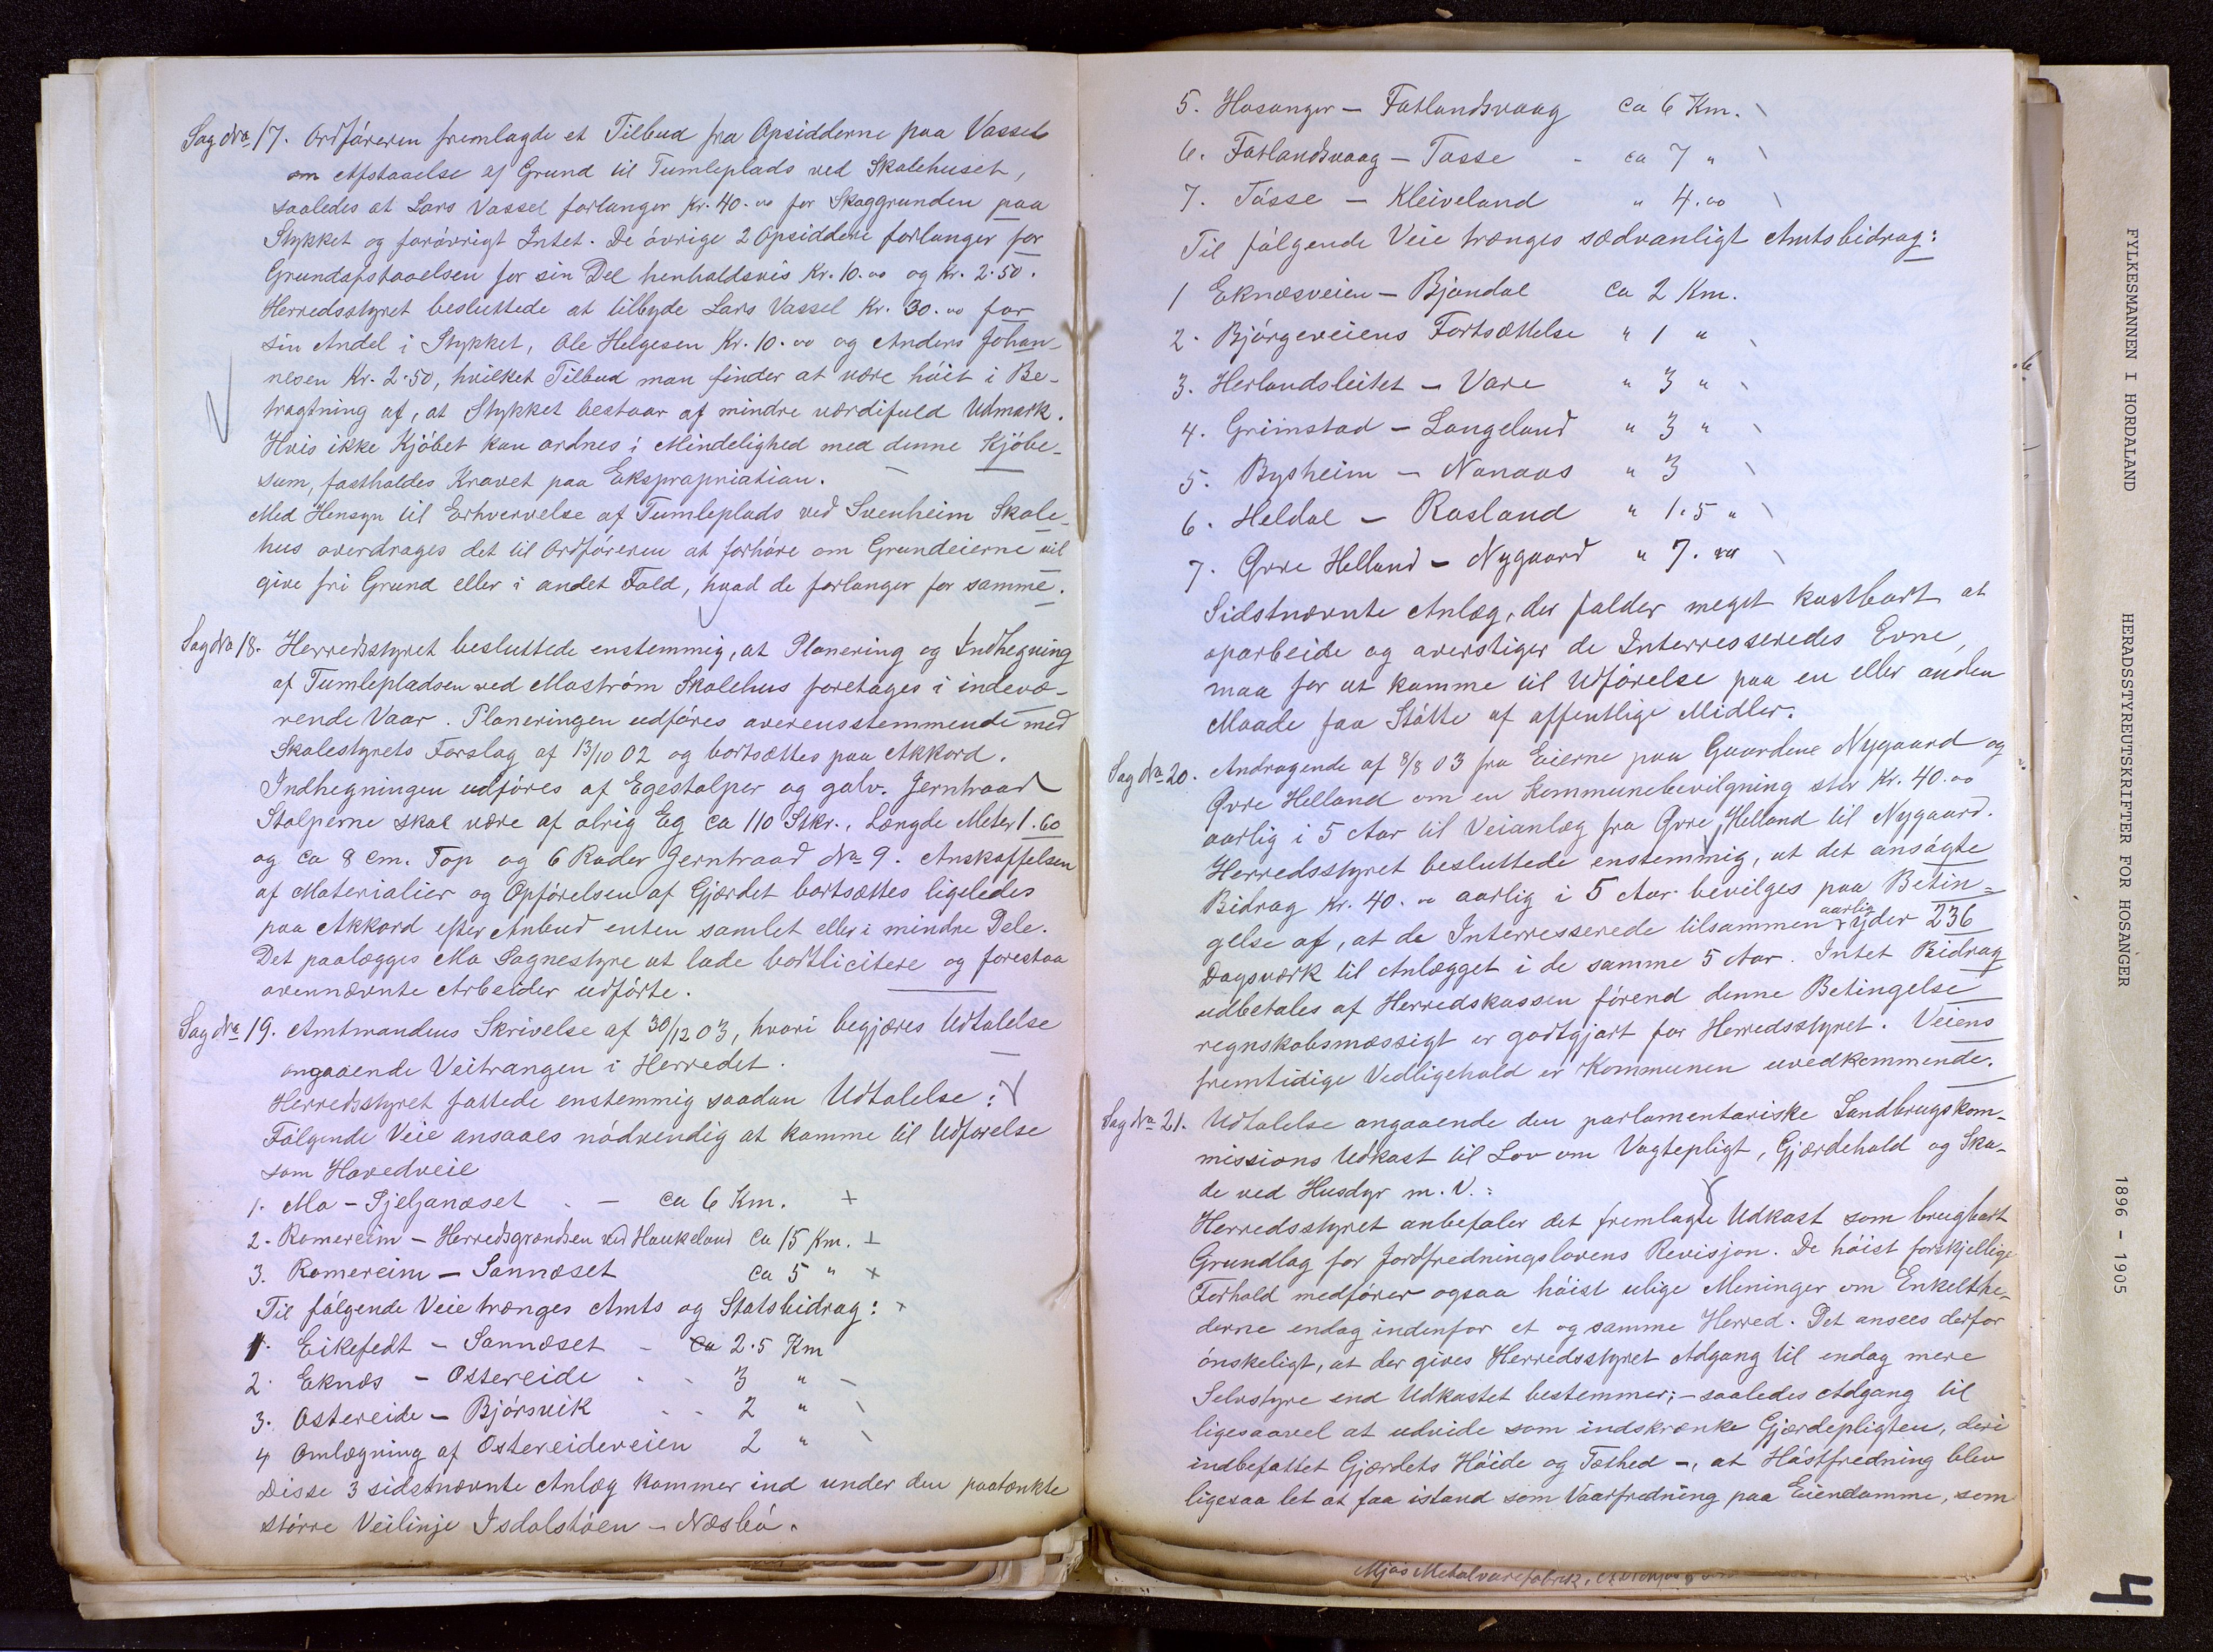 Sag No 17. Ordføreren fremlagde et Tilbud fra Opsidderne paa Vassel
om Afstaaelse af Grund til Tumleplads ved Skolehuset,
saaledes at Lars Vassel forlanger Kr. 40.00 for Skoggrunden paa
Stykket og forøvrigt Intet. De øvrige 2 Opsiddere forlanger for
Grundafstaaelsen for sin Del henholdsvis Kr. 10.00 og Kr. 2.50.
Herredsstyret besluttede at tilbyde Lars Vassel Kr. 30.00 for
sin Andel i Stykket, Ole Helgesen Kr. 10.00 og Anders Johan-
nesen Kr. 2.50, hvilket Tilbud man finder at være høit i Be-
tragtning af, at Stykket bestaar af mindre værdifuld Udmark.
Hvis ikke Kjøbet kan ordnes i Mindelighed med denne Kjøbe-
sum, fastholdes Kravet paa Ekspropriation.
Med Hensyn til Erhvervelse af Tumleplads ved Svenheim Skole-
hus overdrages det til Ordføreren at forhøre om Grundeierne vil
give fri Grund eller i andet Fald, hvad de forlanger for samme.
Sag No 18. Herredsstyret besluttede enstemmig, at Planering og Indhegning
af Tumlepladsen ved Mostrøm Skolehus foretages i indevæ-
rende Vaar. Planeringen udføres overensstemmende med
Skolestyrets Forslag af 13/10 02 og bortsættes paa Akkord.
Indhegningen udføres af Egestolper og galv. Jerntraad
Stolperne skal være af alrig Eg ca 110 Stkr., Længde Meter 1.60
og ca 8 cm. Top og 6 Rader Jerntraad No 9. Anskaffelsen
af Materialier og Opførelsen af Gjærdet bortsættes ligeledes
paa Akkord efter Anbud enten samlet eller i mindre Dele.
Det paalægges Mo Sognestyre at lade bortlicitere og forestaa
ovennævnte Arbeider udførte.
Sag No 19. Amtmandens Skrivelse af 30/12 03, hvori begjæres Udtalelse
angaaende Veitrangen i Herredet.
Herredsstyret fattede enstemmig saadan Udtalelse:
Følgende Veie ansaaes nødvendig at komme til Udførelse
som Hovedveie
1. Mo - Fjeljanæset . - ca 6 Km. +
2. Romereim - Herredsgrændsen ved Haukeland ca 15 Km. +
3. Romereim - Sannæset ca 5 " +
Til følgende Veie trænges Amts og Statsbidrag: +
1. Eikefedt - Sannæset - ca 2.5 Km
2. Eknæs - Ostereide . . 3 " -
3. Ostereide - Bjørsvik - - 2 " \
4 Omlægning af Ostereideveien 2 " \
Disse 3 sidstnævnte Anlæg kommer ind under den paatænkte
større Veilinje Isdalstøen - Næsbø.
5. Hosanger - Fatlandsvaag ca 6 Km. \
6. Fatlandsvaag - Tosse - ca 7 " \
7. Tøsse - Kleiveland " 4.00 \
Til følgende Veie trænges sædvanligt Amtsbidrag:
1 Eknæsveien - Bjøndal ca 2 Km.
2. Bjørgeveiens Fortsættelse " 1 " \
3. Herlandsleitet - Vare " 3 " \
4. Grimstad - Langeland " 3 " \
5. Bysheim - Nonaas " 3 \
6. Heldal - Rosland " 1.5 " \
7. Øvre Helland - Nygaard " 7. \
Sidstnævnte Anlæg, der falder meget kostbart at
oparbeide og overstiger de Interresseredes Evne,
maa for at komme til Udførelse paa en eller anden
Maade faa Støtte af offentlige Midler.
Sag No 20. Andragende af 8/8 03 fra Eierne paa Gaardene Nygaard og
Øvre Helland om en Kommunebevilgning stor Kr. 40.00
aarlig i 5 Aar til Veianlæg fra Øvre Helland til Nygaard.
Herredsstyret besluttede enstemmig, at det ansøgte
Bidrag Kr. 40.00 aarlig i 5 Aar bevilges paa Betin-
gelse af, at de Interresserede tilsammen aarlig yder 236
Dagsværk til Anlægget i de samme 5 Aar. Intet Bidrag
udbetales af Herredskassen førend denne Betingelse
regnskabsmæssigt er godtgjort for Herredsstyret. Veiens
fremtidige Vedligehold er Kommunen uvedkommende.
Sag No 21. Udtalelse angaaende den parlamentariske Landbrugskom-
missions Udkast til Lov om Vogtepligt, Gjærdehold og Ska-
de ved Husdyr m. V.:
Herredsstyret anbefaler det fremlagte Udkast som brugbart
Grundlag for Jordfredningslovens Revisjon. De høist forskjellige
Forhold medfører ogsaa høist ulige Meninger om Enkelthe-
derne endog indenfor et og samme Herred. Det ansees derfor
ønskeligt, at der gives Herredsstyret Adgang til endog mere
Selvstyre end Udkastet bestemmer; - saaledes Adgang til
ligesaavel at udvide som indskrænke Gjærdepligten, deri
indbefattet Gjærdets Høide og Tæthed -, at Høstfredning blev
ligesaa let at faa istand som Vaarfredning paa Eiendomme, som
Mjøs Metalvarefabrik,
FYLKESMANNEN I HORDALAND
HERADSSTYREUTSKRIFTER FOR HOSANGER
1896 - 1905
4